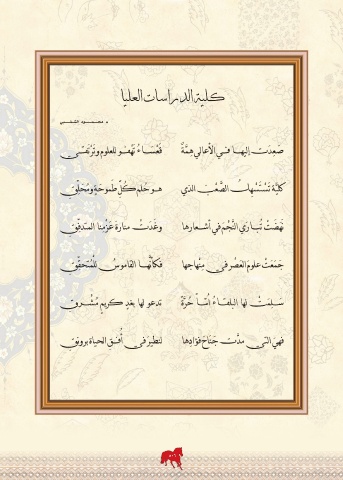 كلية الدراسات العليا
صعدت إليها في الأعالي همّةٌ قعساءُ تهفو للعلوم وترتقي
كليّة تستسهلُ الصّعب الذي هو حلم كلّ طموحةٍ ومحلّق
نهضتْ تباري النّجم في أشعارها وغدتْ منارة عزمنا المتدفّق
جمعتْ علوم العصر في منهاجها فكأنّها القاموسُ للمتحقّق
سلمتْ لها البلقاءُ أمّاً حرّةً تدعو لها بغدٍ كريمٍ مشرق
فهي التي مدّت جناح فؤادها لتطير في أفق الحياة برونق